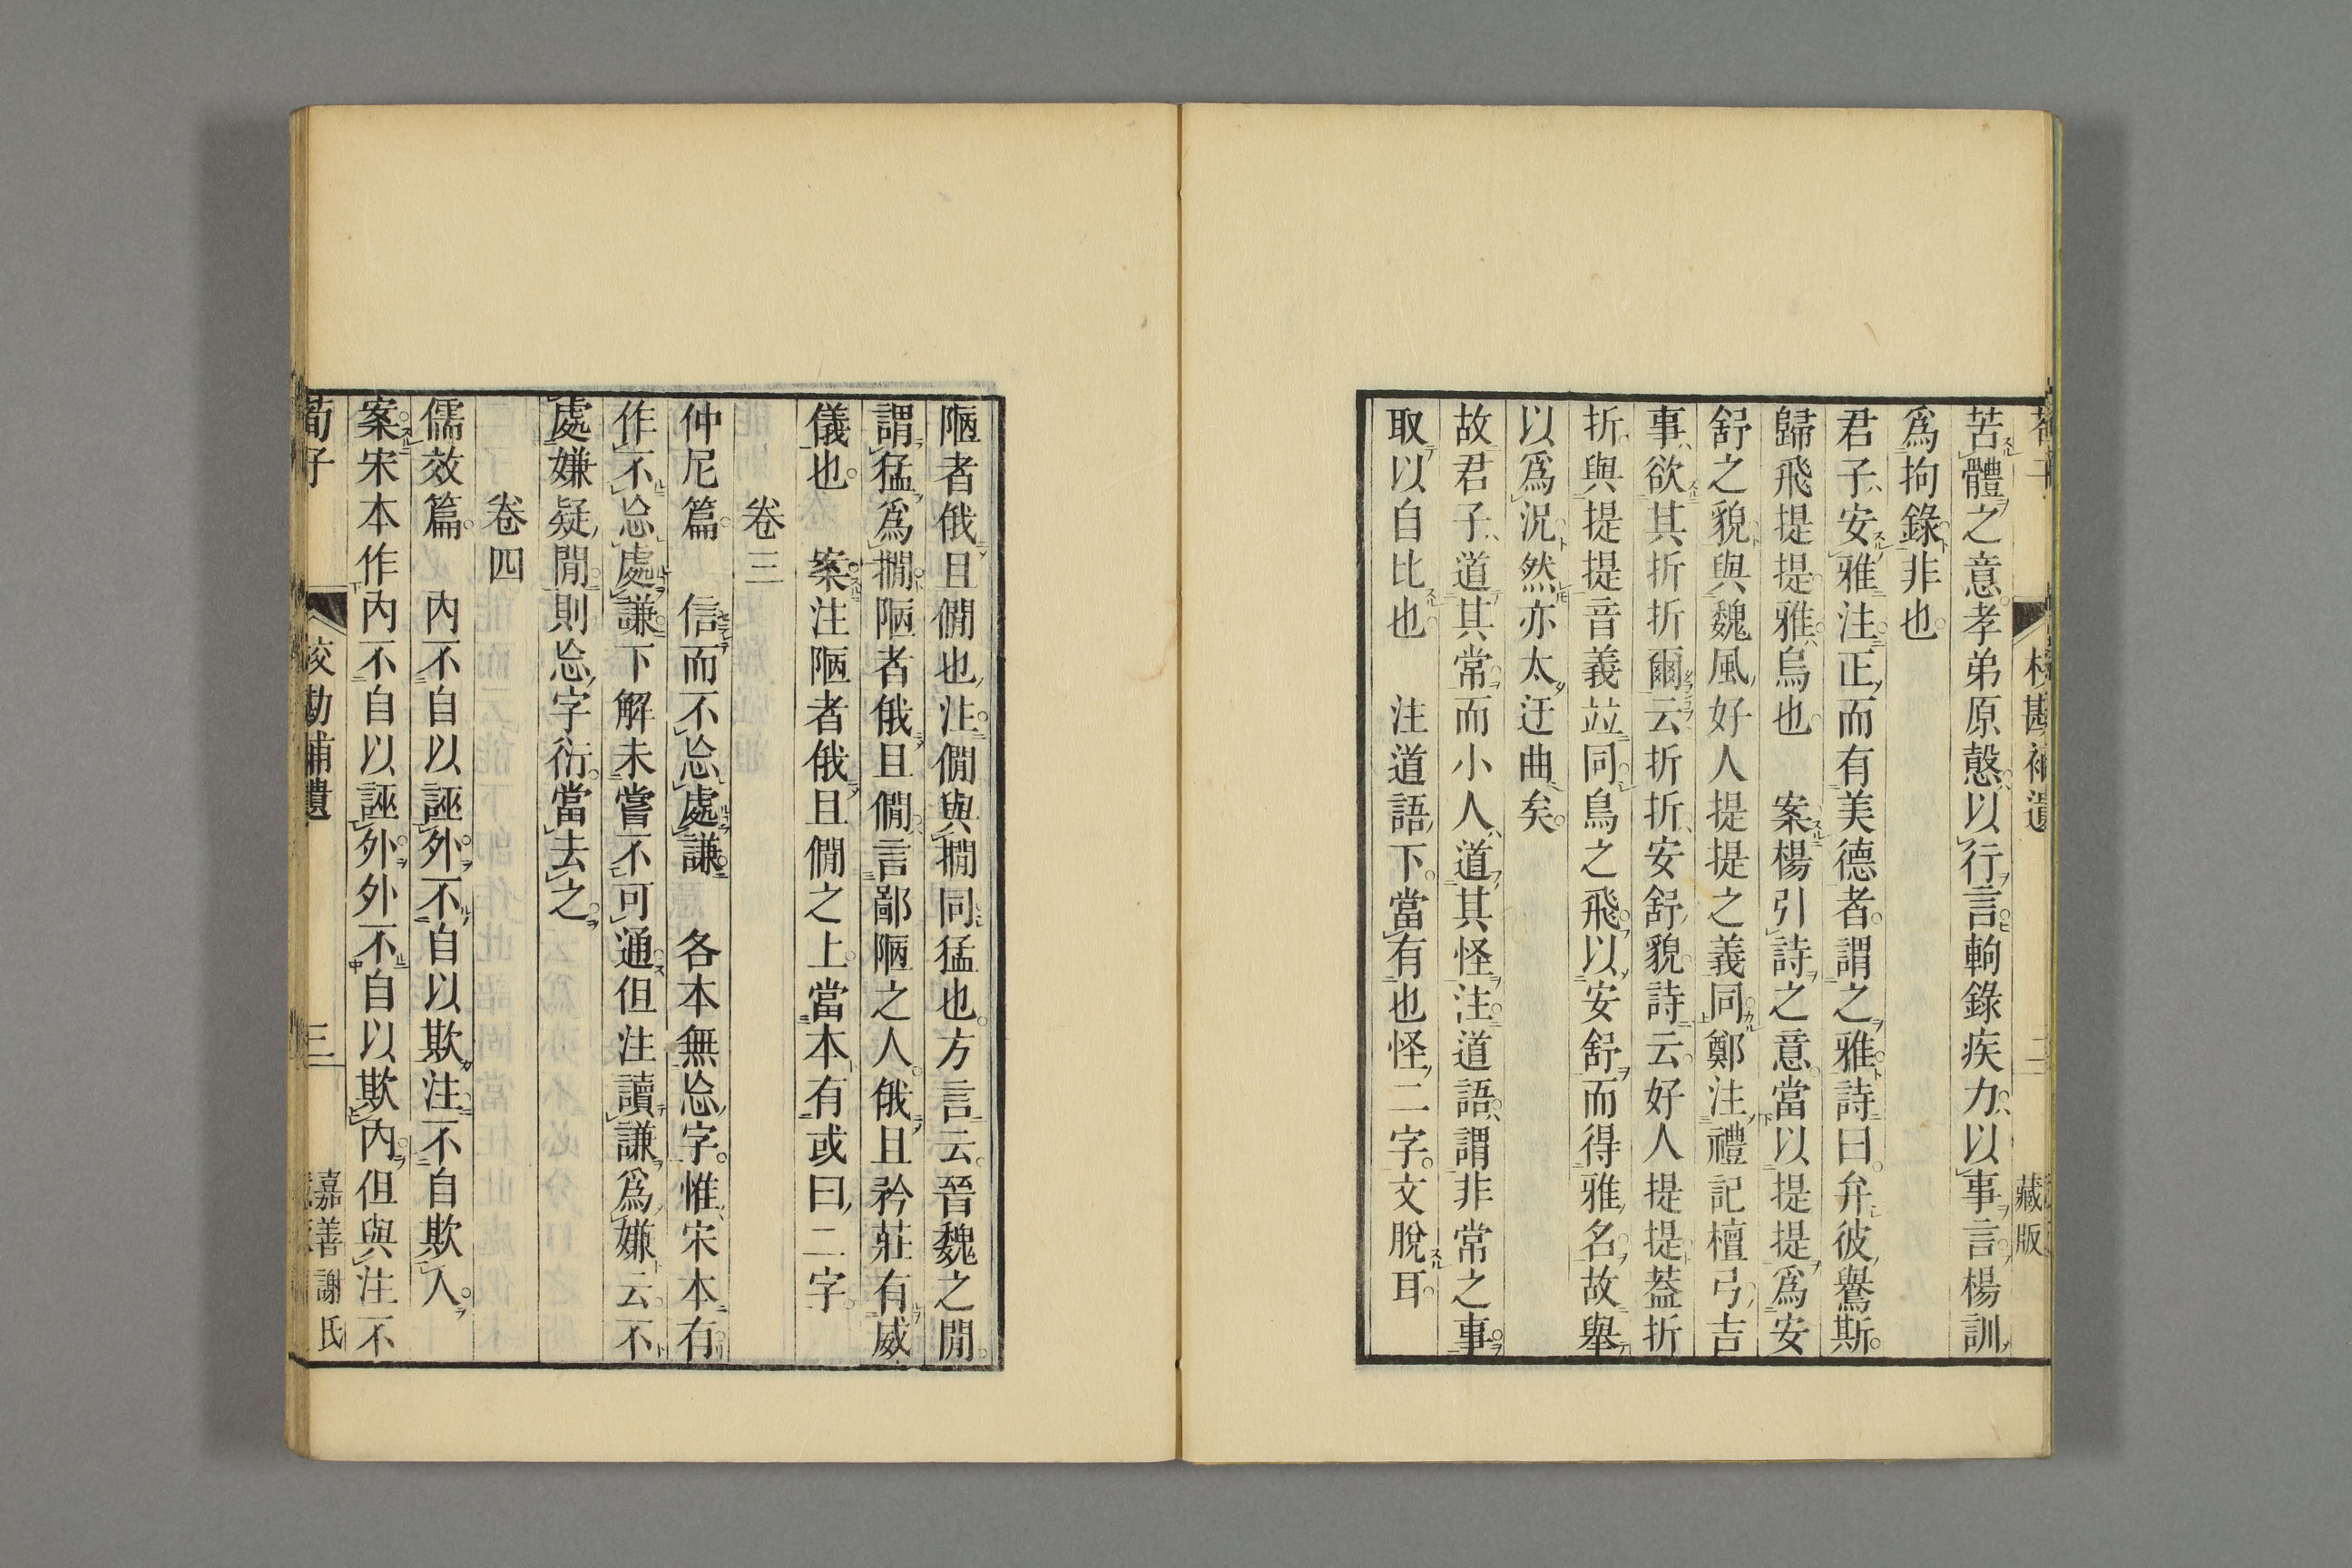 苦體之意孝弟原愨以行言軥錄疾力以事言楊訓
爲拘錄非也
君子安雅注正而有美德者謂之雅詩曰弁彼鸒斯
歸飛提提雅烏也　案楊引詩之意當以提提爲安
舒之貌與魏風好人提提之義同鄭注禮記檀弓吉
事欲其折折爾云折折安舒貌詩云好人提提蓋折
折與提提音義竝同鳥之飛以安舒而得雅名故舉
以爲況然亦太迂曲矣
故君子道其常而小人道其怪注道語謂非常之事
取以自比也　注道語下當有也怪二字文脫耳
校勘補遺
二
藏版
陋者俄且僩也注僩與撊同猛也方言云晉魏之閒
謂猛爲撊陋者俄且僩言鄙陋之人俄且矜莊有威
儀也　案注陋者俄且僩之上當本有或曰二字
卷三
仲尼篇　信而不忩處謙　各本無忩字惟宋本有
作不忩處謙下解未嘗不可通但注讀謙爲嫌云不
處嫌疑閒則忩字衍當去之
卷四
儒效篇　內不自以誣外不自以欺注不自欺人
案宋本作內不自以誣外外不自以欺內但與注不
荀子
校勘補遺
三
嘉善謝氏